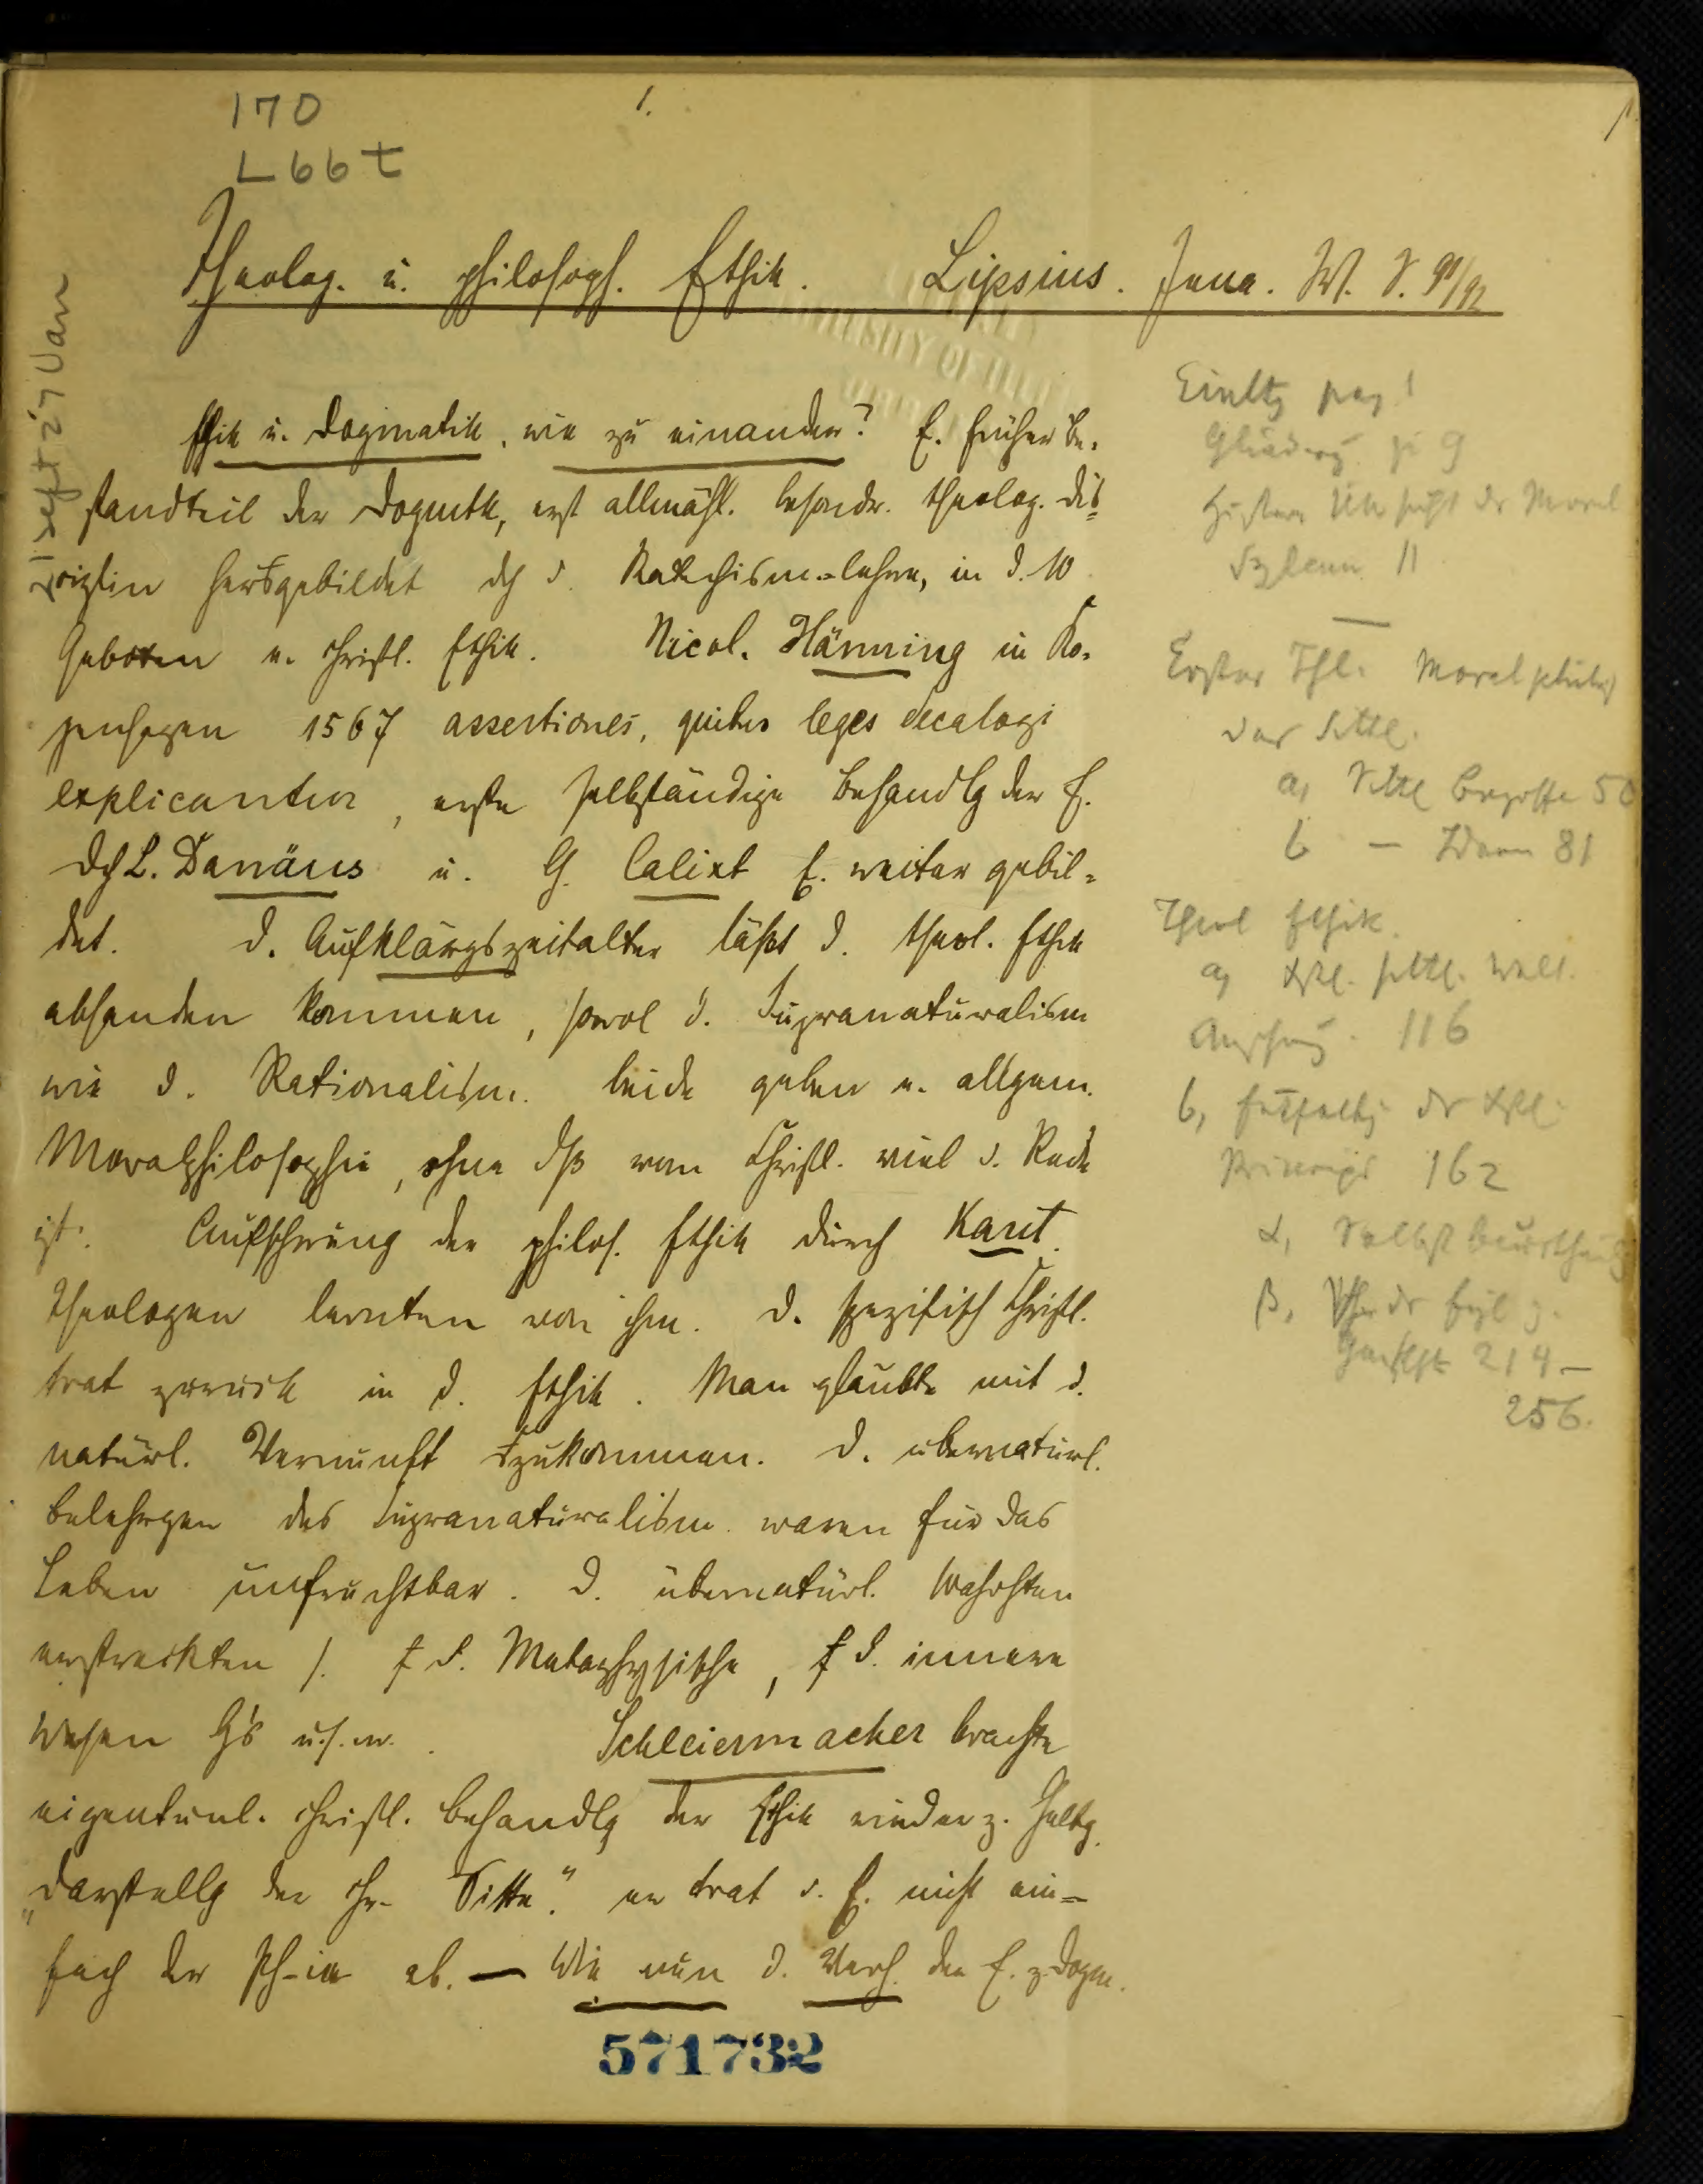 170
1.
L66t
Theolog. u. philosoph. Ethik. Lipsius. Jena. W. S. 91/92
Ethik u. Dogmatik, wie zu einander? E. früher Be-
standteil der Dogmtk, erst allmähl. besondr. theolog. Dis-
ziplin herausgebildet dch d. Katechism.-lehre, in d. 10
Geboten e. christl. Ethik. Nicol. Hänning in Ko-
penhagen 1567 assertiones, quibus leges decalogi
explicantur, erste selbständige Behandlg der E.
Dch L. Danäus u. G. Calixt E. weiter gebil-
det. D. Aufklärgszeitalter läßt d. theol. Ethik
abhanden kommen, sowol d. Supranaturalism
wie d. Rationalism. beide geben e. allgem.
Moralphilosophie, ohne dß vom Christl. viel d. Rede
ist. Aufschwung der philos. Ethik durch Kant.
Theologen lernten von ihm. D. spezifisch Christl.
trat zurück in d. Ethik. Man glaubte mit d.
natürl. Vernunft auszukommen. D. übernatürl.
Belehrgen des Supranaturalism. waren für das
Leben unfruchtbar. D. übernatürl. Wahrhten
erstreckten s. f d. Metaphysische, f d. innere
Wesen G's u.s.w. Schleiermacher brachte
eigentüml. christl. Behandlg der Ethik wieder z. Geltg.
„Darstellg der chr. Sitte." er trat d. E. nicht ein-
fach der Ph-ie ab. — Wie nun d. Verh. der E. z. Dogm.
571732
21 Sept 27 Van
Einltg pag 1
Gliederg p 9
Histor. Übersicht der Moral
Systeme 11
Erster Thl. Moralphilos
das Sittl.
a, Sittl Begriffe 50
b — Ideen 81
Theol Ethik.
a, chrl. sittl. Welt.
Anschaug. 116
b, Entfaltg der chrl.
Princips 162
α, Selbstbeurtheilg
β,
214 –
256.